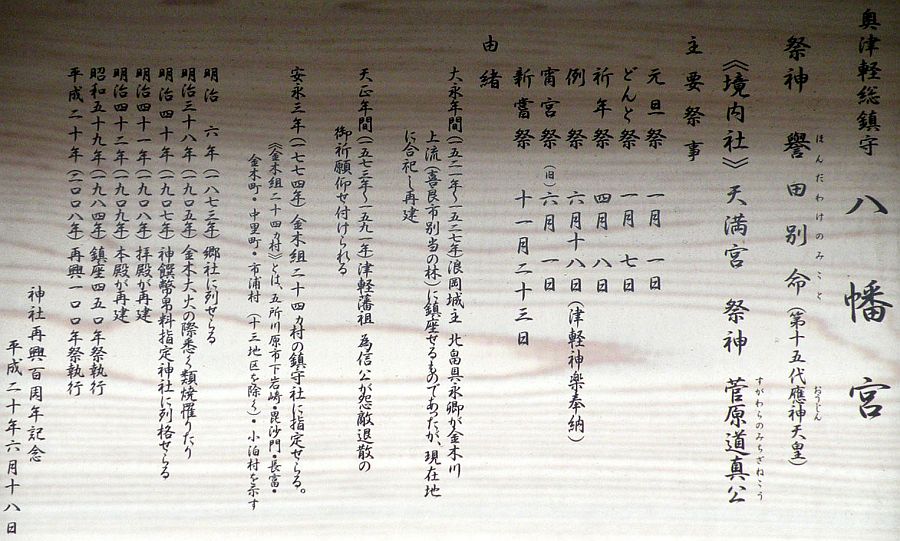 奥津軽総鎮守 八幡宮
祭神 譽田別命(第十五代應神天皇)
ほんだわけのみこと
おうじん
《境内社》天満宮 祭神 菅原道真公
すがわらのみちざねこう
主要祭事
元旦祭 一月一日
どんと祭 一月七日
祈年祭 四月八日
例祭 六月十八日(津軽神楽奉納)
宵宮祭(旧)六月一日
新嘗祭 十一月二十三日
由緒
大永年間(一五二一年~一五二七年)浪岡城主 北畠具永卿が金木川
上流(喜良市別当の林)に鎮座せるものであったが、現在地
に合祀し再建
天正年間(一五七三年~一五九一年)津軽藩祖 為信公が怨敵退散の
御祈願仰せ付けられる
安永三年(一七七四年)金木組二十四カ村の鎮守社に指定せらる。
《金木組二十四カ村》とは、五所川原市下岩崎・毘沙門・長富・
金木町・中里町・市浦村(十三地区を除く)・小泊村を示す
明治 六年(一八七三年)郷社に列せらる
明治三十八年(一九〇五年)金木大火の際悉く類焼罹りたり
明治四十年(一九〇七年)神饌幣帛料指定神社に列格せらる
明治四十一年(一九〇八年)拝殿が再建
明治四十二年(一九〇九年)本殿が再建
昭和五十九年(一九八四年)鎮座四五〇年祭執行
平成二十年(二〇〇八年)再興一〇〇年祭執行
神社再興百周年記念
平成二十年六月十八日